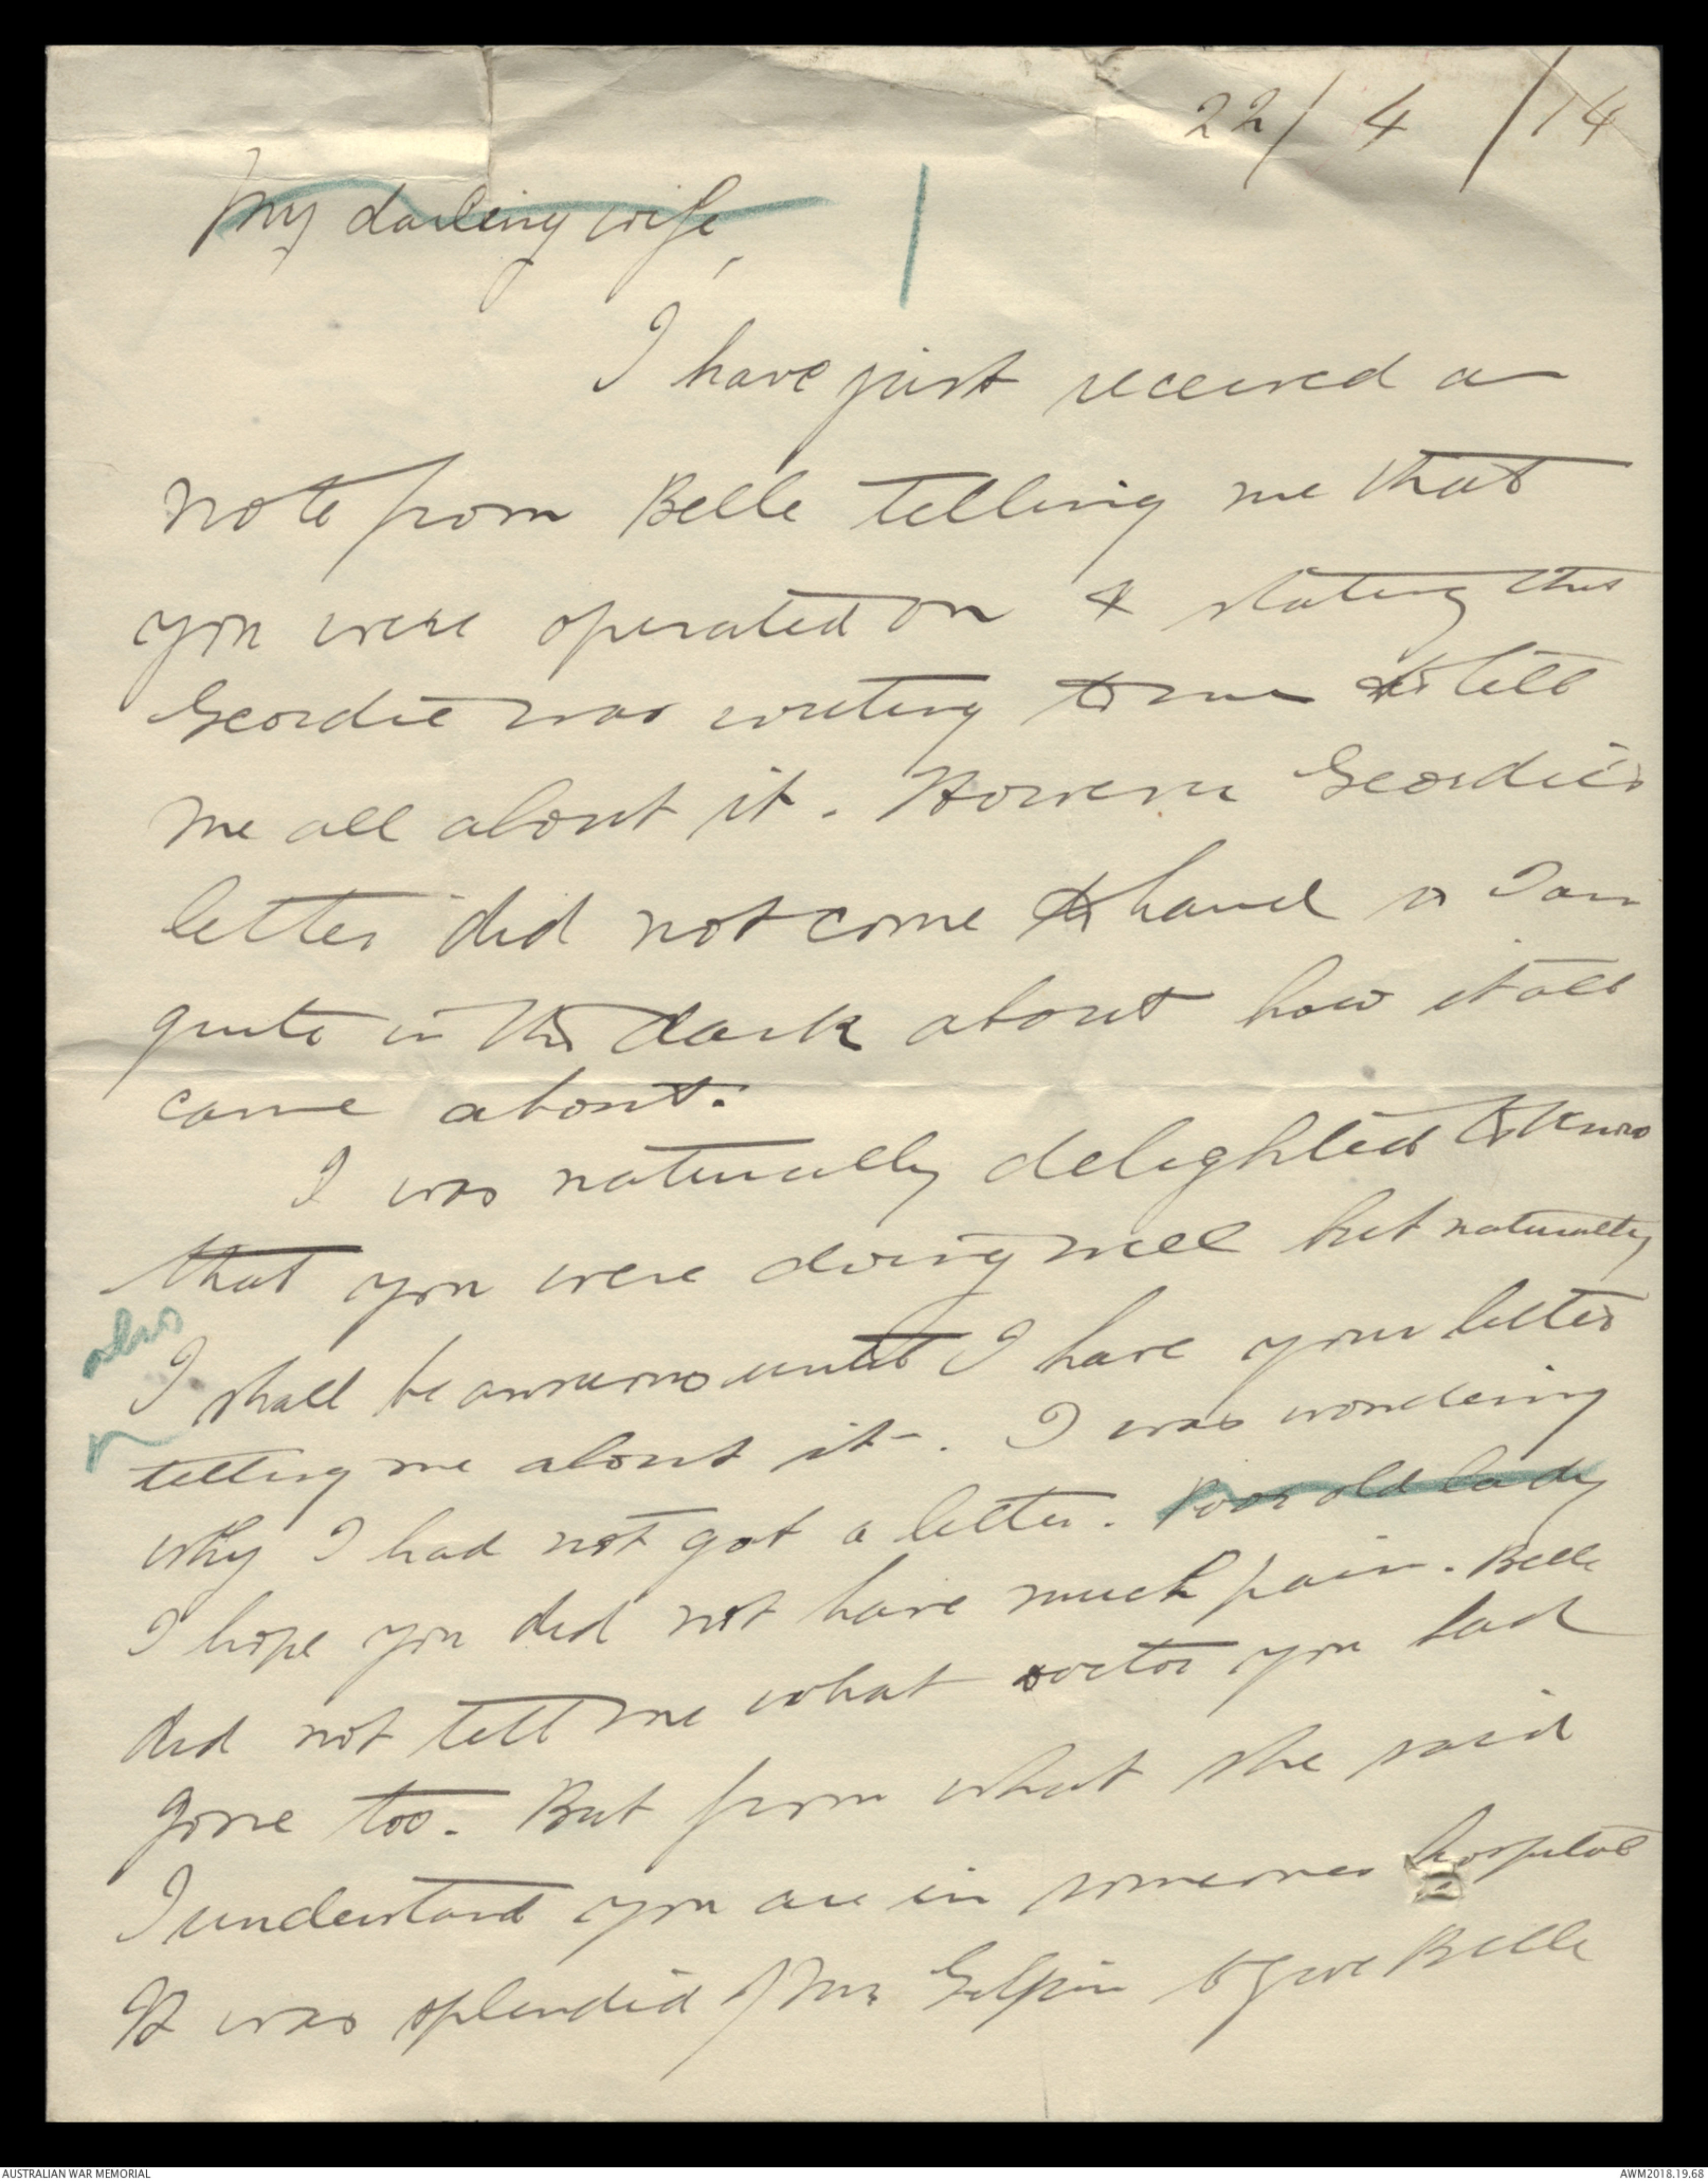 22/4/14
My darling wife,
I have just received a
note from Belle telling me that
you were operated on & stating that
Geordie was writing to me to tell
me all about it. However Geordie's
letter did not come to hand so I am
quite in the dark about how it all
came about.
I was naturally delighted to know
that you were doing well but naturally
also
I shall be anxious until I have your letter
telling me about it. I was wondering
why I had not got a letter. Poor old lady
I hope you did not have much pain. Belle
did not tell me what doctor you had
gone too. But from what she said
I understand you are in someones hospital
It was splendid of Mrs Gilpin to give Belle
AUSTRALIAN WAR MEMORIAL
AWM2018.19.68